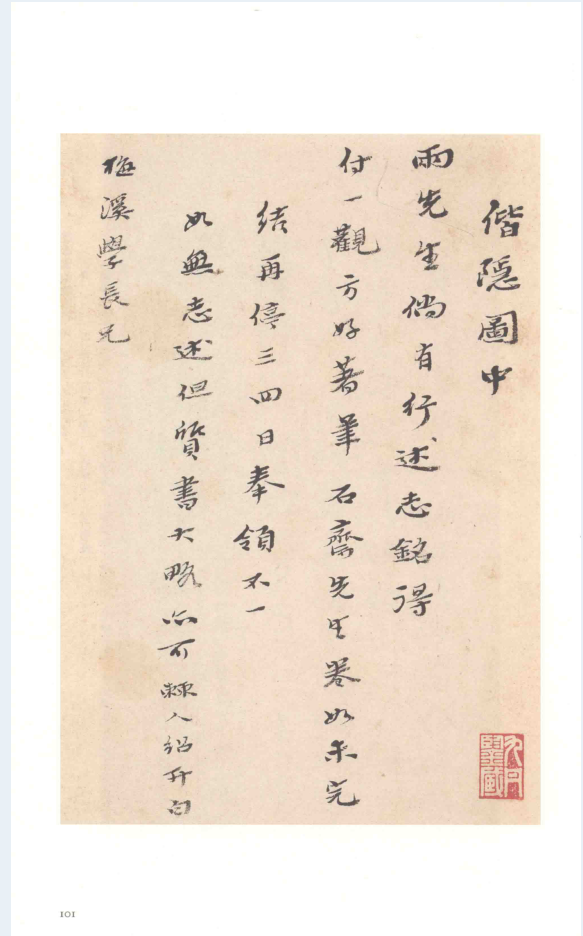 偕隱圖中
兩先生倘有行述志銘得
付一觀方好著筆石齋先生如未完
結再停三四日奉領不一
如無志述但質書大略亦可棘人紹升白
梅溪學長兄
101